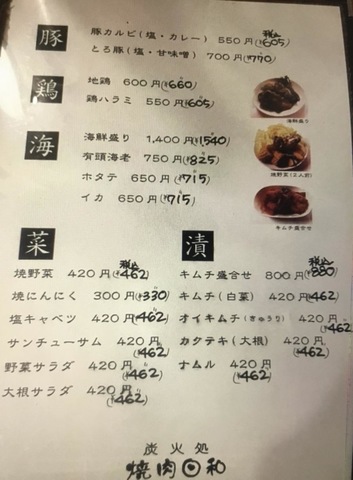 豚
豚カルビ(塩・カレー) 550円(¥605) 税込
とろ豚(塩・甘味噌) 700円(¥770)
鶏
地鶏 600円(¥660)
鶏ハラミ 550円(¥605)
海鮮盛り
海
海鮮盛り 1,400円(¥1540)
有頭海老 750円(¥825)
ホタテ 650円(¥715)
イカ 650円(¥715)
焼野菜(2人前)
キムチ盛合せ
菜
焼野菜 420円(¥462) 税込
焼にんにく 300円(¥330)
塩キャベツ 420円(¥462)
サンチューサム 420円(¥462)
野菜サラダ 420円(¥462)
大根サラダ 420円(¥462)
漬
キムチ盛合せ 800円(¥880) 税込
キムチ(白菜) 420円(¥462)
オイキムチ(きゅうり) 420円(¥462)
カクテキ(大根) 420円(¥462)
ナムル 420円(¥462)
炭火処
焼肉日和